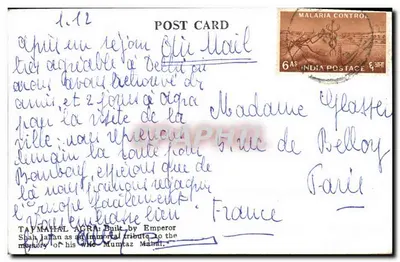 1.12
POST CARD
MALARIA CONTROL
6 AS
INDIA POSTAGE
Air Mail
après un séjour
très agréable à Delhi où
nous avons retrouvé de
amis, et 2 jours à Agra
pour la visite de la
ville, nous reprenons
demain la route pour
Bombay, espérons que de
là nous pourrons
l'Europe facilement
Madame
5, rue de Belloy
Paris
France
TAJ MAHAL AGRA: Built by Emperor
Shah Jahan as an immortal tribute to the
memory of his wife Mumtaz Mahal.